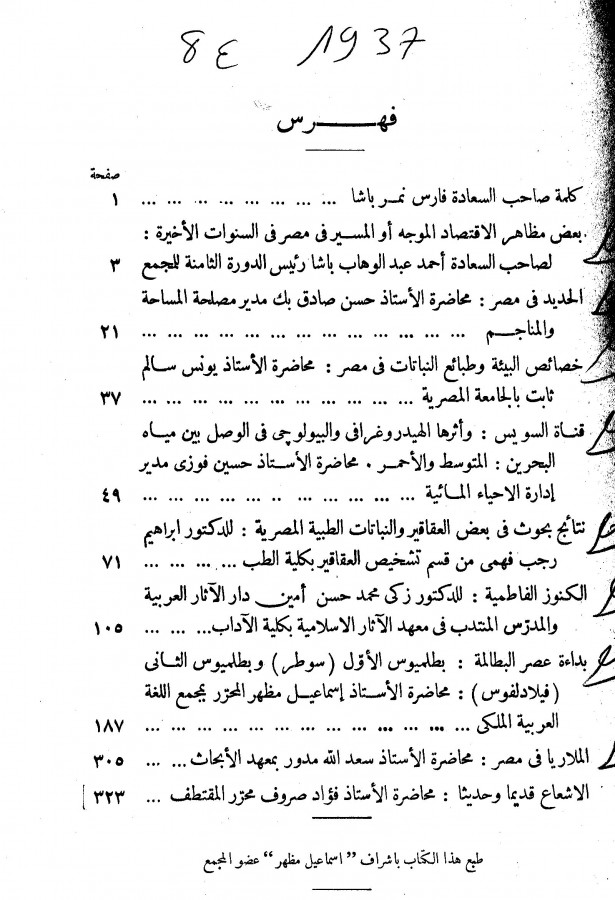 8 ع 1937
فهرس
صفحة
كلمة صاحب السعادة فارس نمر باشا ... ... ... ... ... ... .. ... ١
بعض مظاهر الاقتصاد الموجه أو المسير فى مصر فى السنوات الأخيرة :
لصاحب السعادة أحمد عبد الوهاب باشا رئيس الدورة الثامنة للجمع ٣
الحديد فى مصر : محاضرة الأستاذ حسن صادق بك مدير مصلحة المساحة
والمناجم ... ... ... ... ... ... ... ... ... ... ... ... ٢١
خصائص البيئة وطبائع النباتات فى مصر : محاضرة الأستاذ يونس سالم
ثابت بالجامعة المصرية ... ... ... ... ... ... ... ... ... ... ٣٧
قناة السويس : وأثرها الهيدروغرافى والبيولوچى فى الوصل بين مياه
البحرين : المتوسط والأحمر . محاضرة الأستاذ حسين فوزى مدير
إدارة الاحياء المائية ... ... ... ... .. ... ... ... ... ... ٤٩
نتائج بحوث فى بعض العقاقير والنباتات الطبية المصرية : للدكتور ابراهيم
رجب فهمى من قسم تشخيص العقاقير بكلية الطب ... ... ... ... ٧١
الكنوز الفاطمية : للدكتور زكى محمد حسن أمين دار الآثار العربية
والمدرّس المنتدب فى معهد الآثار الاسلامية بكلية الآداب... ... ... ١٠٥
بداءة عصر البطالمة : بطلميوس الأوّل (سوطر) وبطلميوس الثانى
(فيلادلفوس) : محاضرة الأستاذ إسماعيل مظهر المحرّر بمجمع اللغة
العربية الملكى ... ... ... ... ... ... ... ... ... ... ... ١٨٧
الملاريا فى مصر : محاضرة الأستاذ سعد الله مدور بمعهد الأبحاث... ... ٣٠٥
الاشعاع قديما وحديثا : محاضرة الأستاذ فؤاد صروف محرّر المقتطف ... ٣٢٣ ]
طبع هذا الكتاب باشراف "اسماعيل مظهر" عضو المجمع